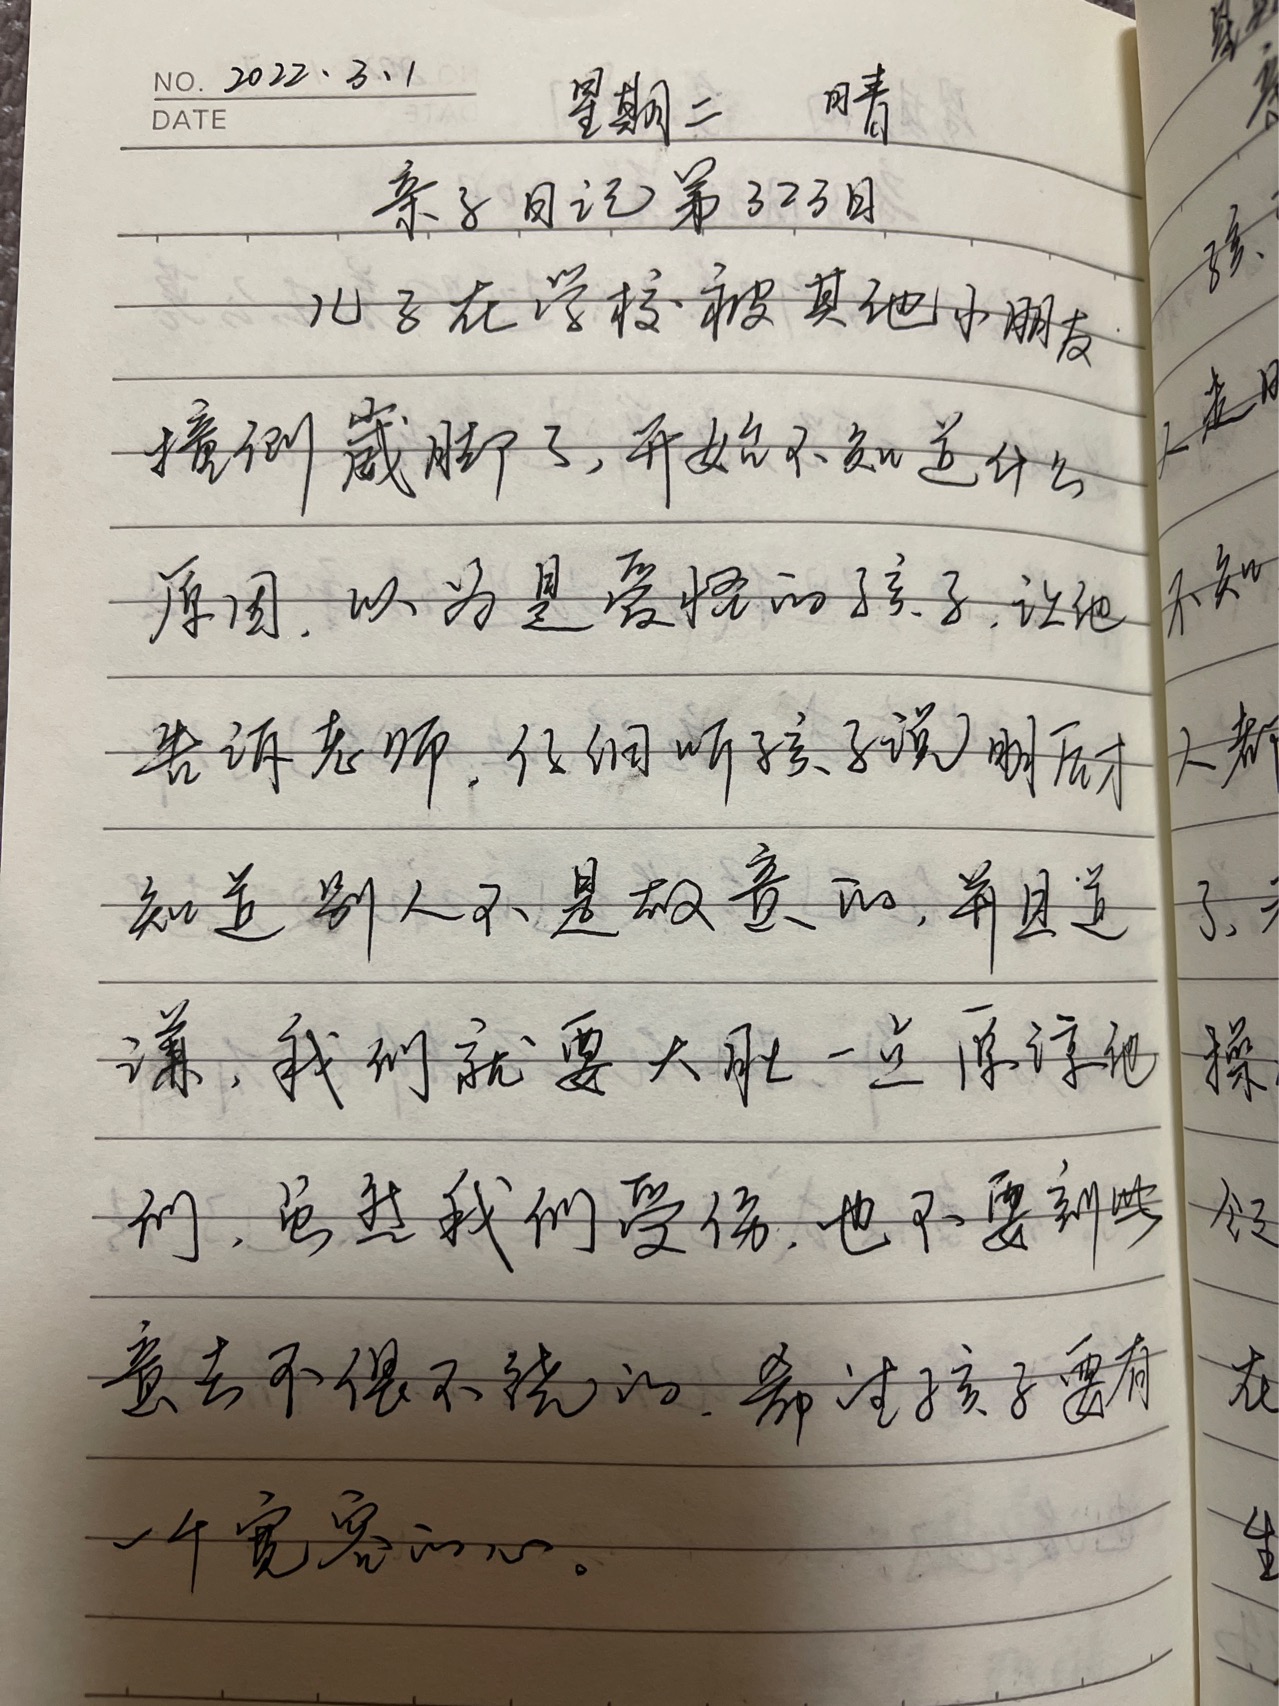 NO. 2022.3.1
DATE
星期二 晴
亲子日记第323日
儿子在学校被其他小朋友
撞倒崴脚了,开始不知道什么
原因,以为是爱怪的孩子,让他
告诉老师,仔细听孩子说明后才
知道别人不是故意的,并且道
谦,我们就要大肚一点原谅他
们,虽然我们受伤,也不要刻些
意去不偎不饶的.希望孩子要有
一个宽容的心。